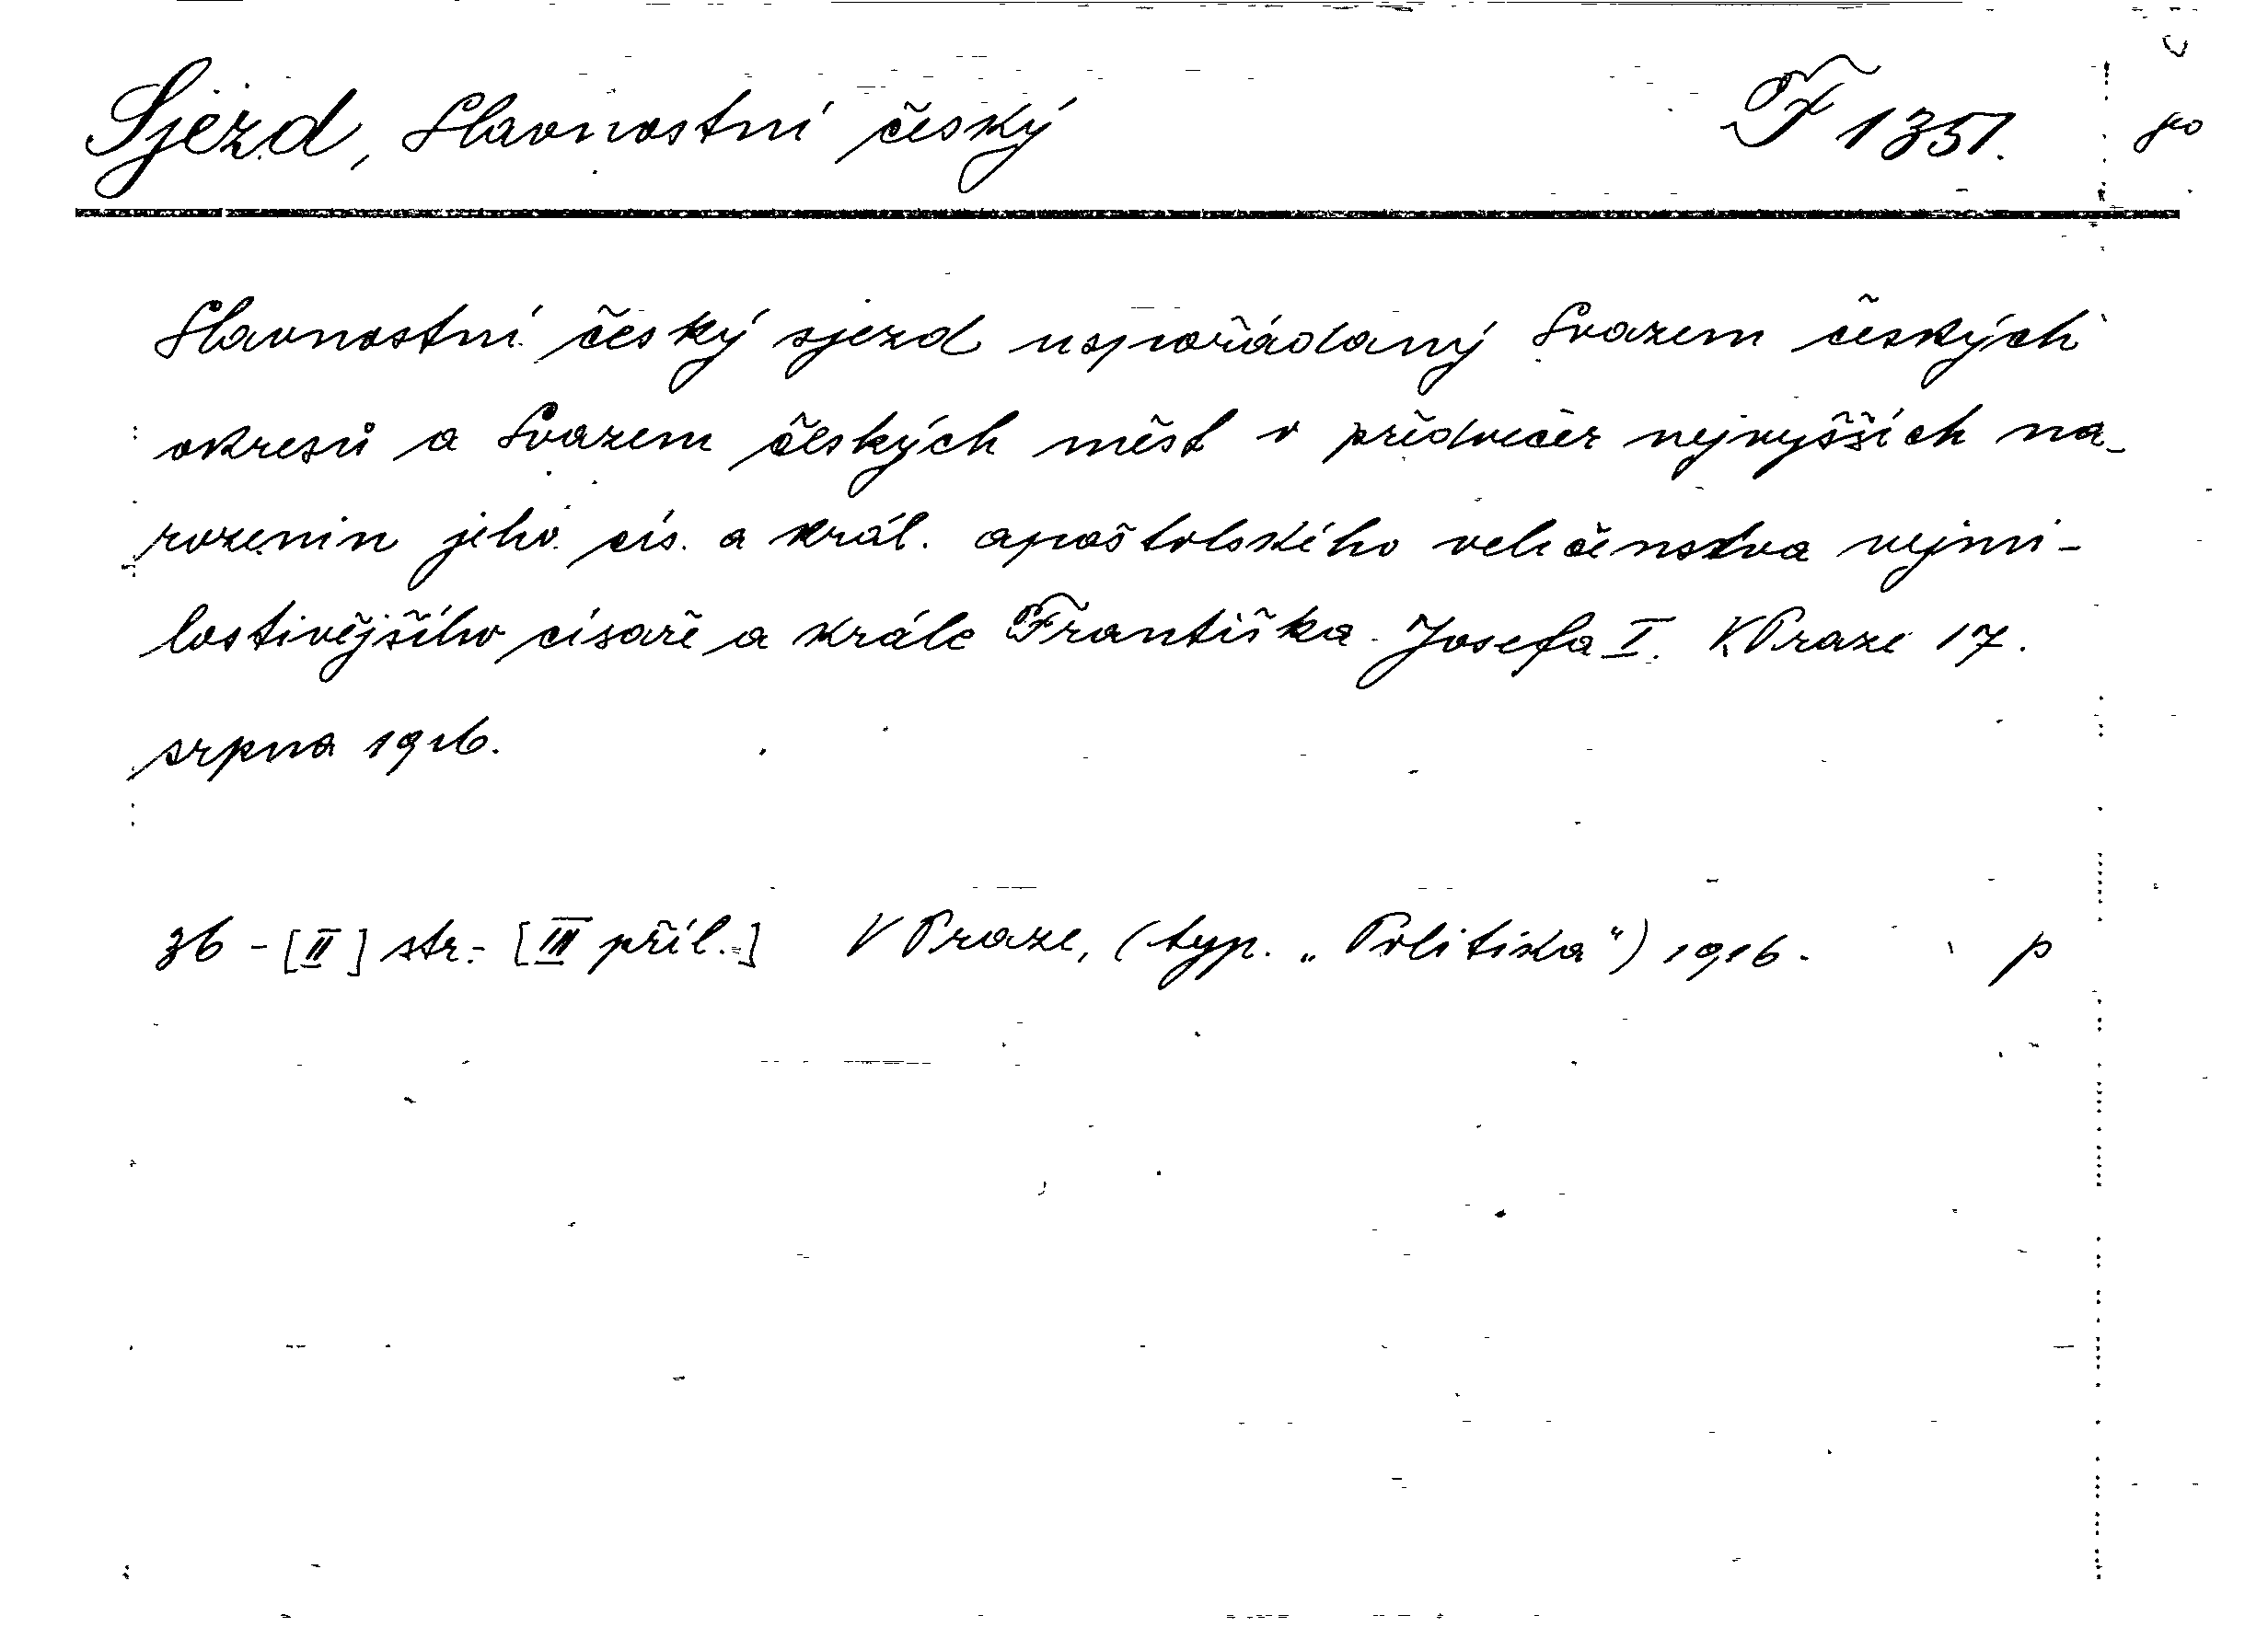 Sjezd, Slavnostní český F 1351.
Slavnostní český sjezd uspořádaný Svazem českých
okresů a Svazem českých měst v předvečer nejvyšších na-
rozenin jeho cís. a král. apoštolského veličenstva nejmi-
lostivějšího císaře a krále Františka Josefa I. V Praze 17.
srpna 1916.
36 - [II] str. - [III příl.] V Praze, (typ. „Politika“) 1916. p